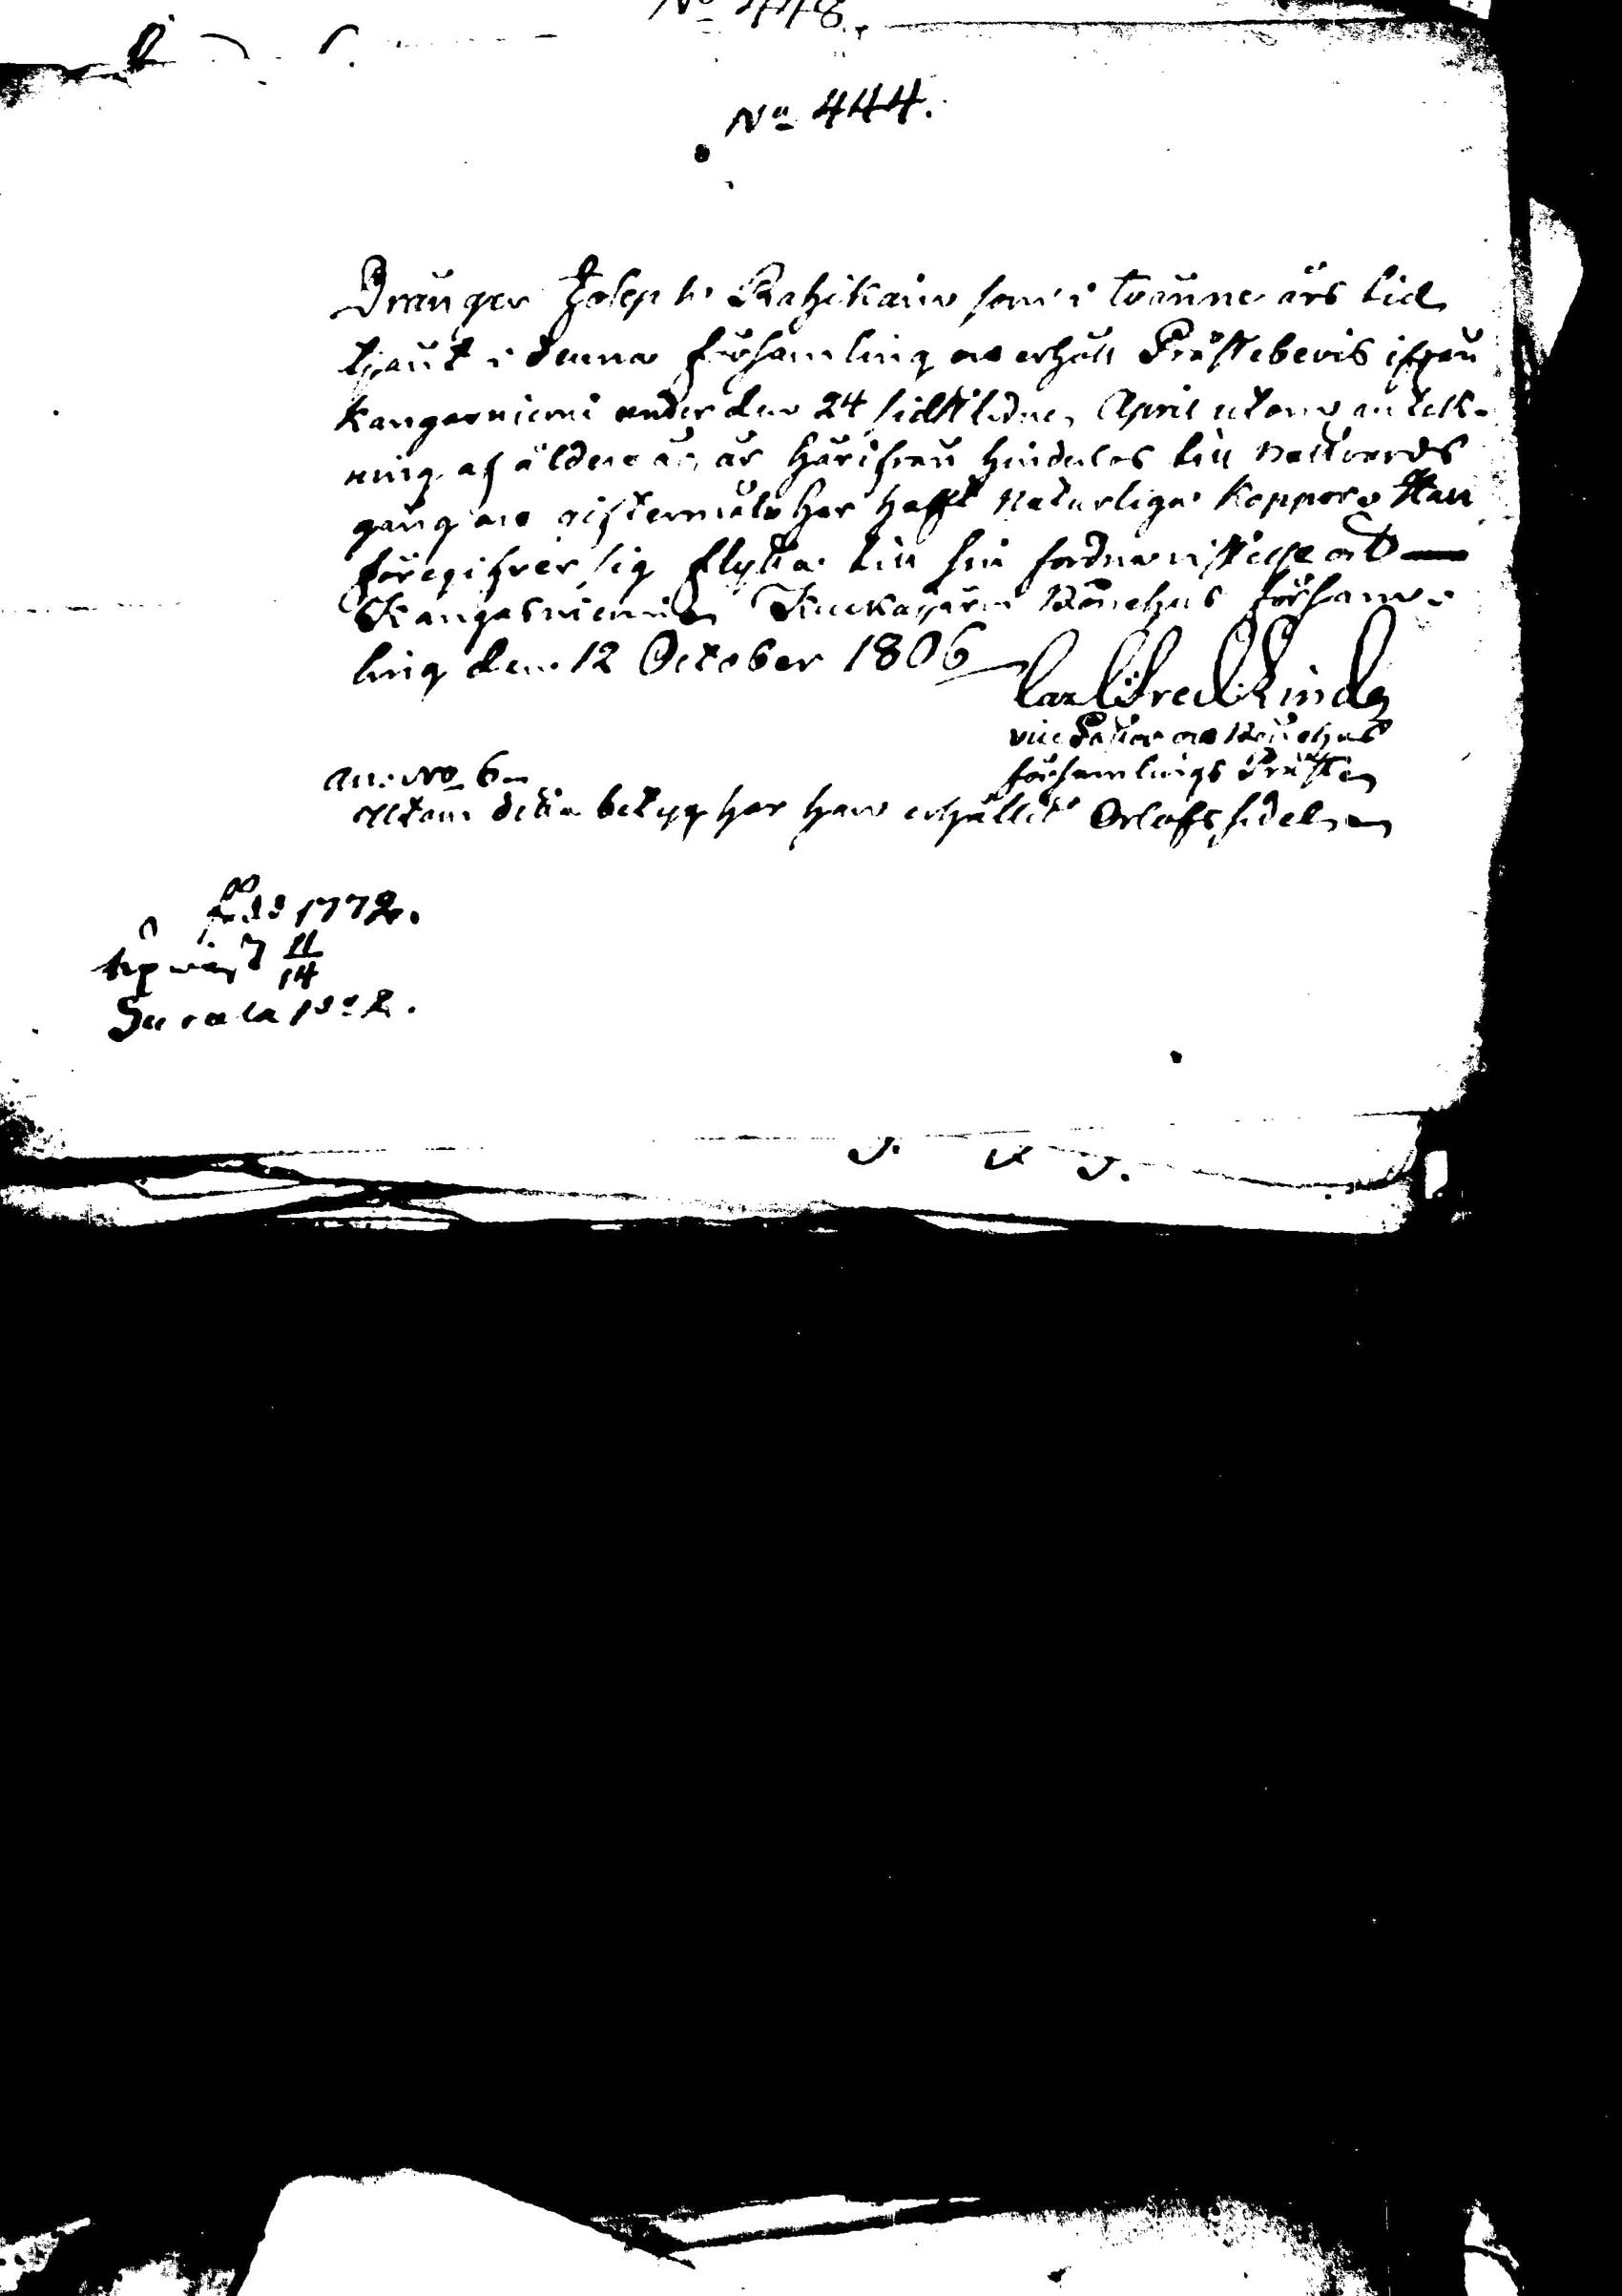 No 444.
Drängen Joseph Rahikain som i tvänne års tid
tjänt i denna församling och erhållit Prästebevis ifrån
Kangasniemi under den 24 sidstledne April utom anteck-
ning af ålderen är härifrån hinderlös till Nattvards
gång och giftermål har haft Naturliga Koppor Han
föregifver sig flytta till sin fordna vistelse ort
Kangasniemi Kuckajärvi Rönehus församl
ling den 12 October 1806
Carl Fred Rinde
vice Pastor och Rönehus
församlings Präst
an: No 6
Utom detta betyg har han erhållit Orlofssedel
född 1772.
11
14
No 2.